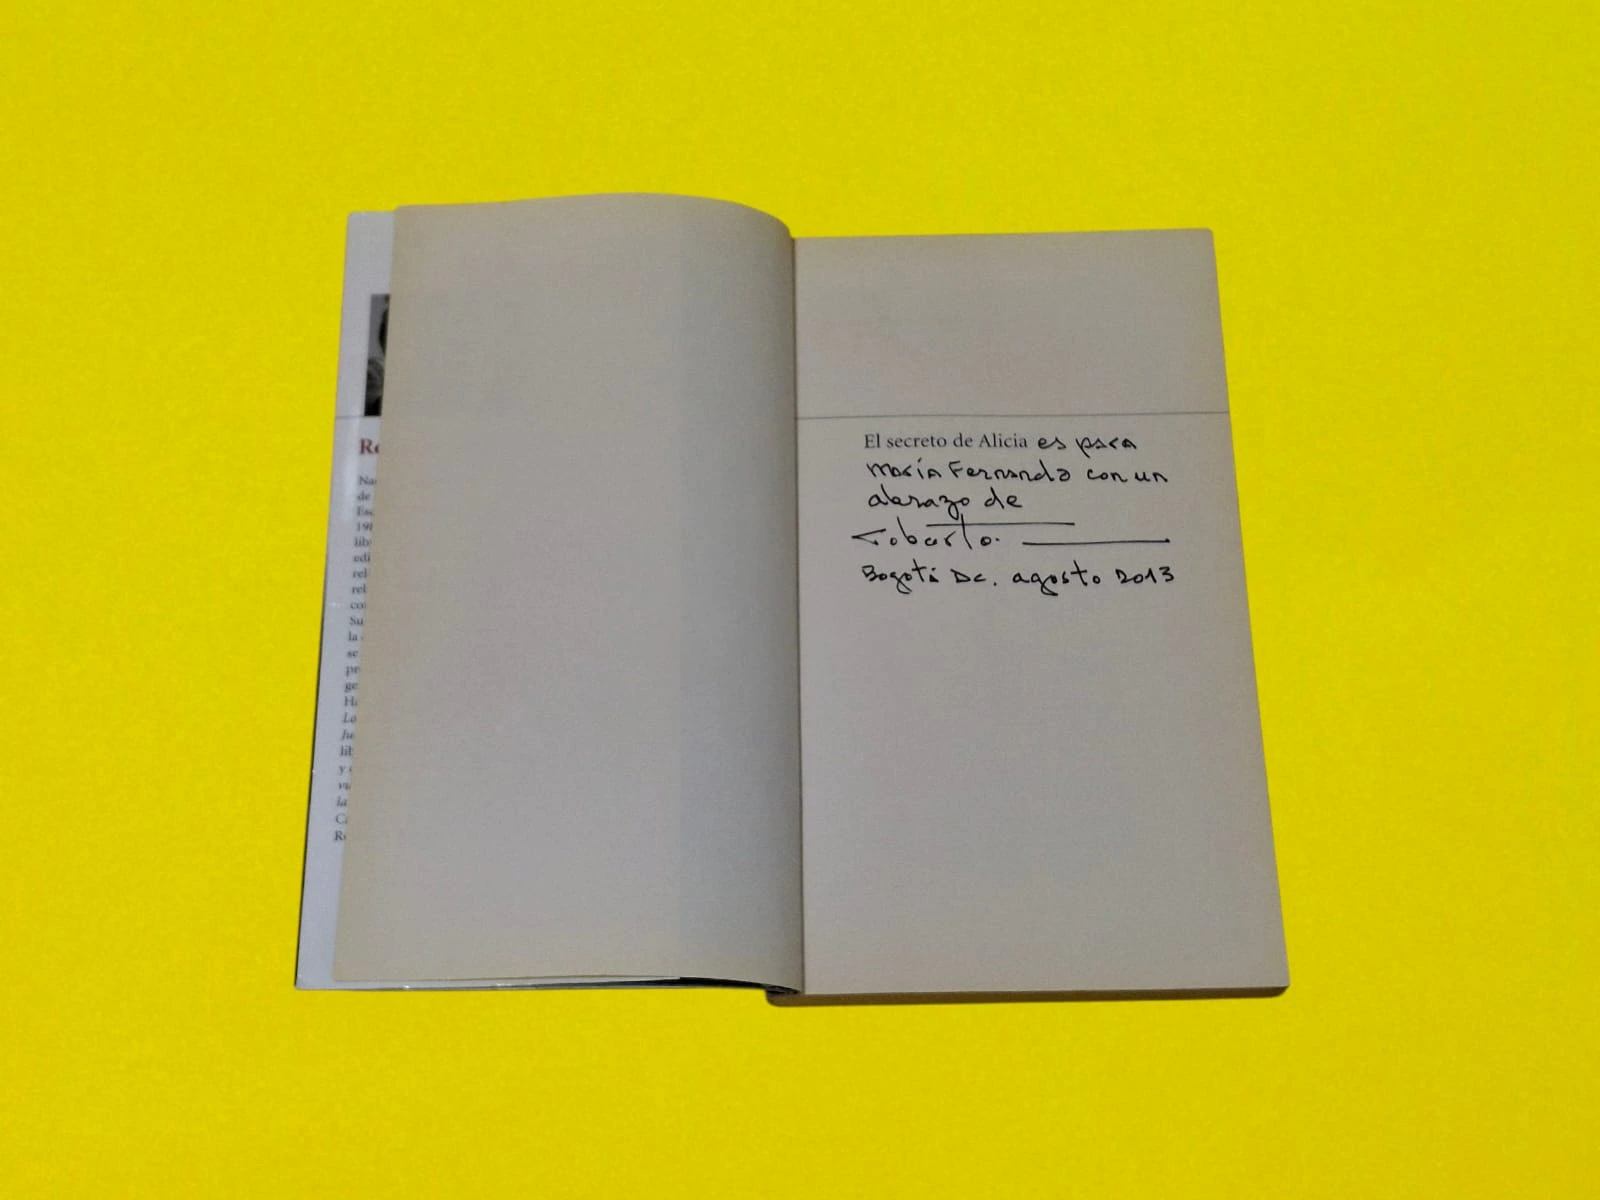 Ro
Na
de
Esc
198
lib
edi
rel
rel
co
Su
la
se
pr
ge
Ha
Lo
he
lib
y
vi
la
Ca
Ro
El secreto de Alicia es para
María Fernanda con un
abrazo de
Roberto.
Bogotá DC. agosto 2013